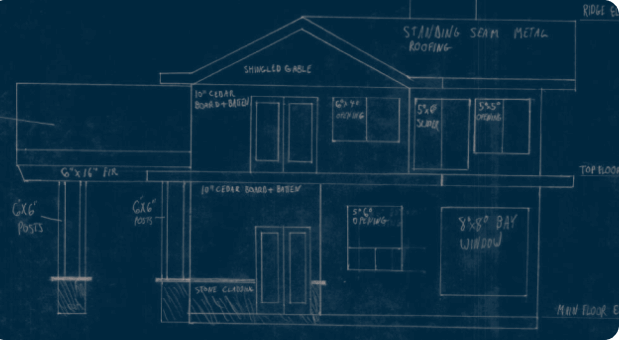 RIDGE EL
STANDING SEAM METAL
ROOFING
SHINGLED GABLE
10" CEDAR
BOARD + BATEN
OPENING
5°x5°
OPENING
SLIDER
6"x16" FIR
TOP FLOOR
6"x6"
POSTS
6"x6"
POSTS
10" CEDAR BOARD + BATTEN
5°6°
OPENING
8°x8° BAY
WINDOW
STONE CLADDING
MAIN FLOOR E